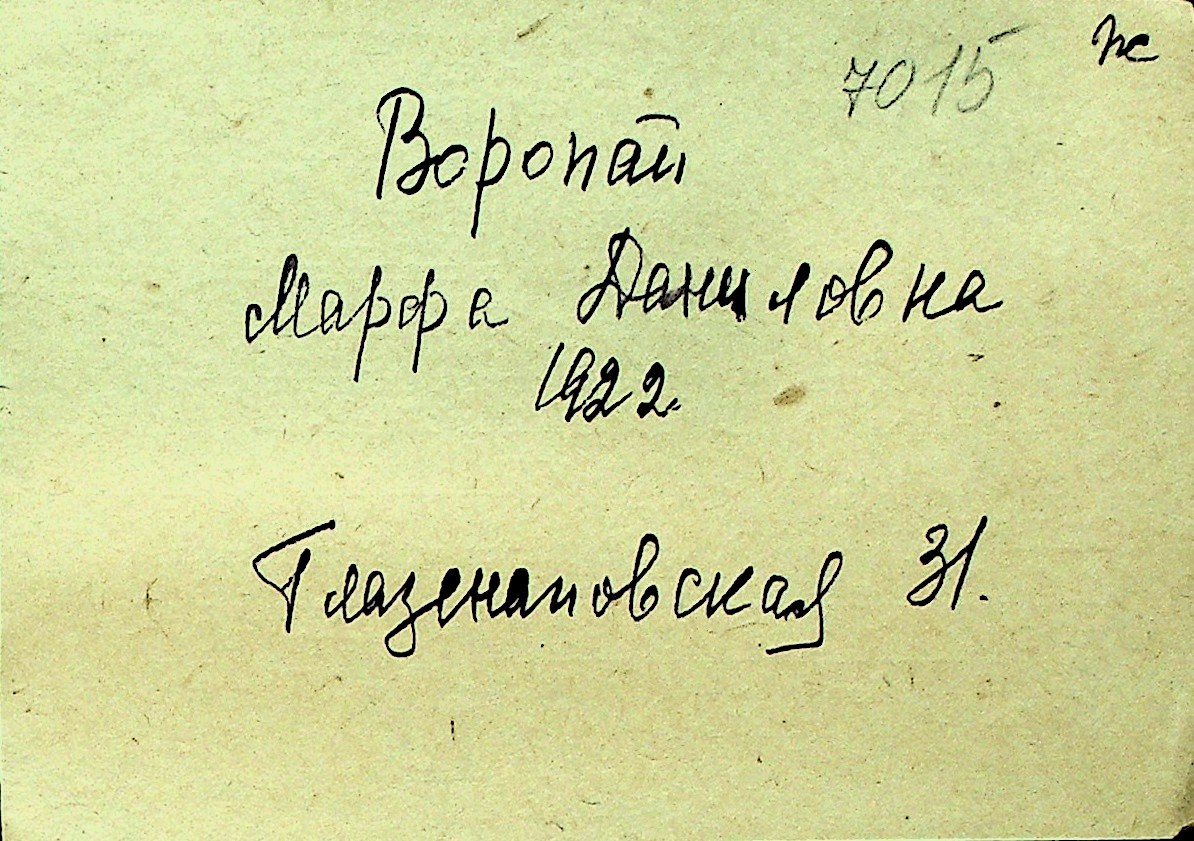 7015 ж
Воропай
Марфа Даниловна
1922.
Глазенаповская 31.